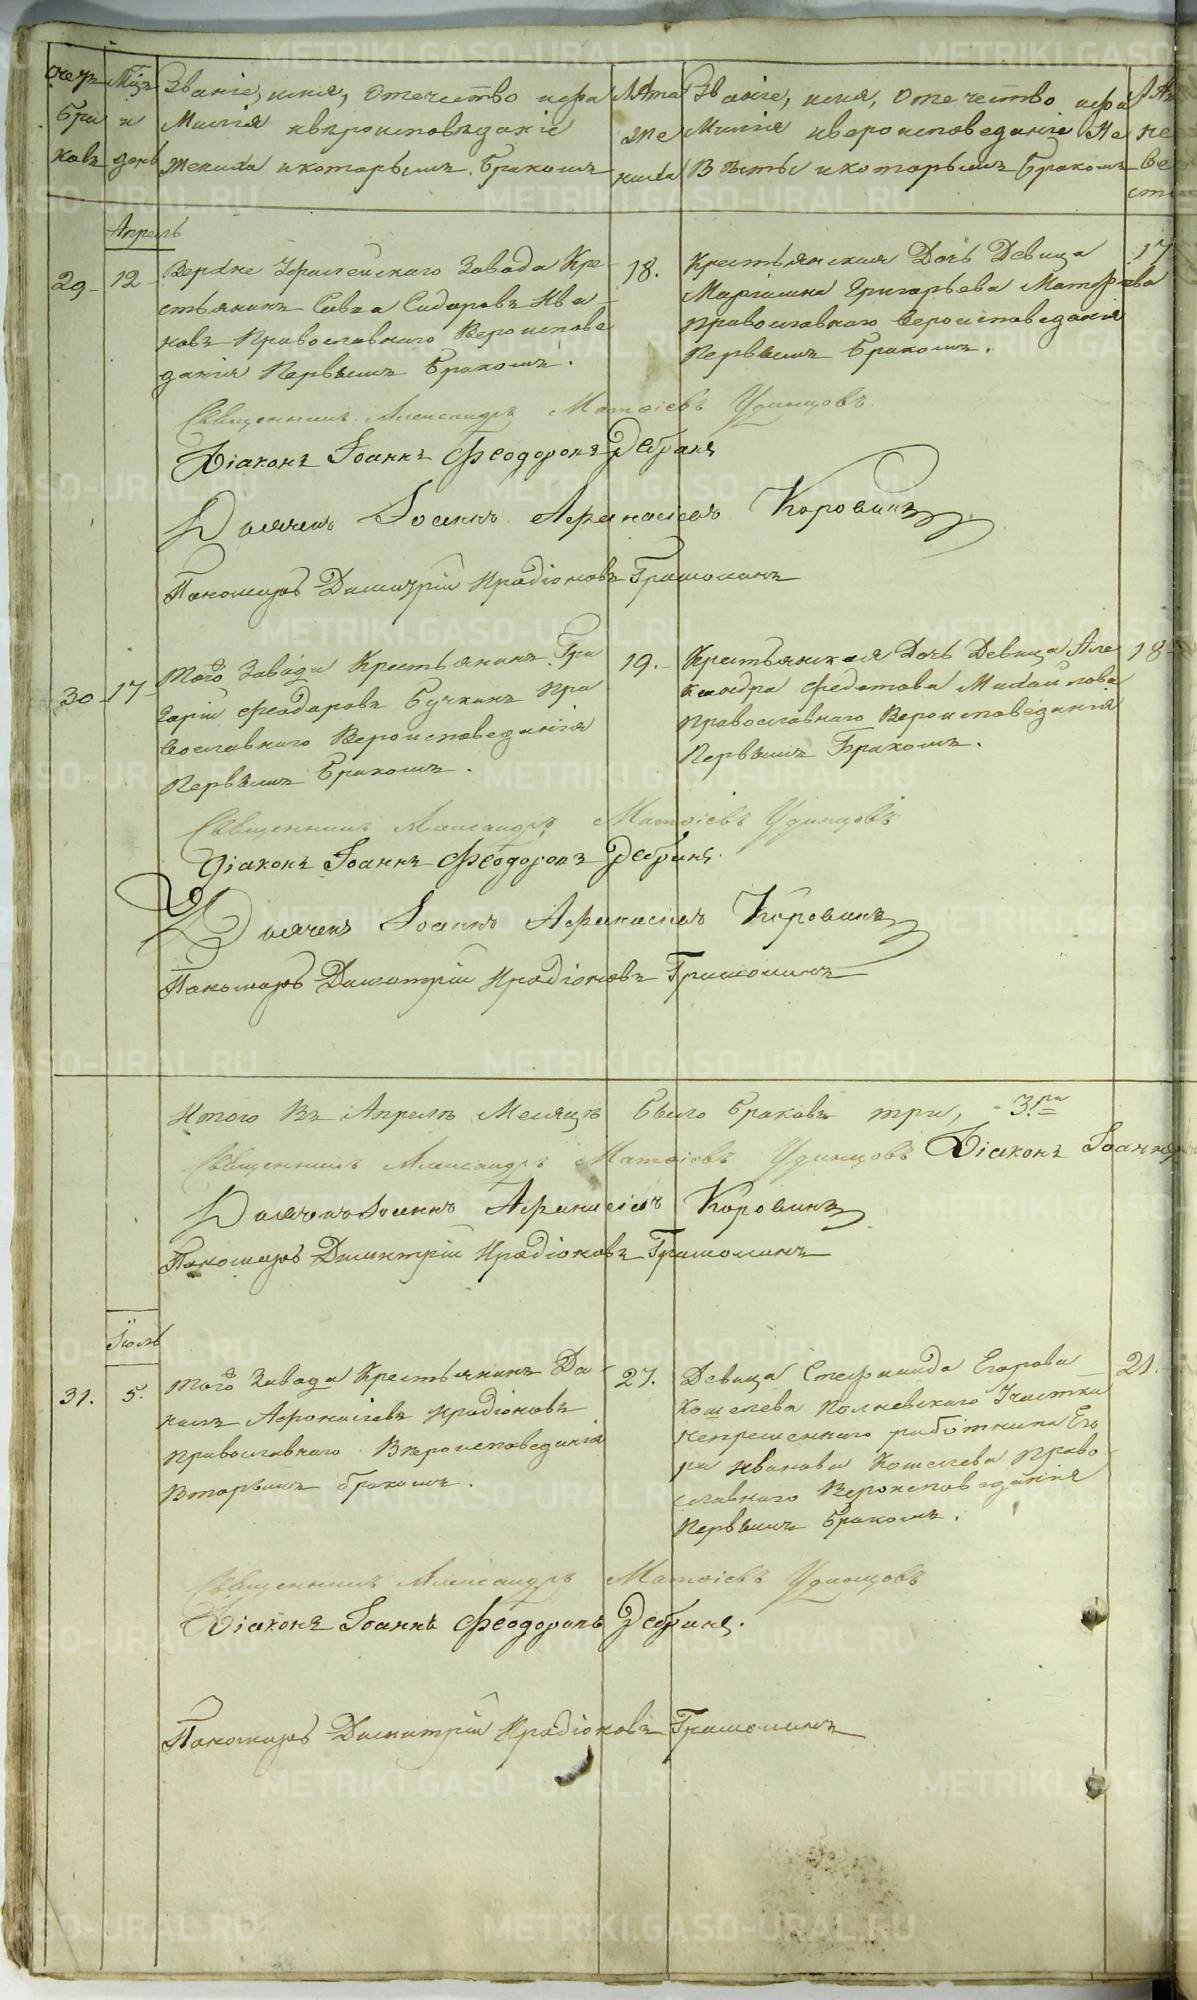 Счетъ браковъ
Мцъ и день
Званіе, имя, отечество и фа
милія и вѣроисповѣданіе
жениха и которымъ бракомъ
Лѣта жениха
Званіе, имя, отечество и фа
милія и вероисповеданіе не
вѣсты и которымъ бракомъ
Лѣта невести
Апрель
29
12
Верхне Уфалейскаго Завода Кре-
стьянинъ Савва Сидоровъ Ива-
новъ Православнаго Вероиспове
данія Первымъ бракомъ.
18.
Крестьянская Дочь Девица
Маріамна Григорьева
Православнаго Вероисповеданія
Первымъ бракомъ.
17
Священникъ Александръ Матѳіевъ Удинцовъ
Діаконъ Іоаннъ Феодоровъ
Дьячекъ Іоаннъ Афанасіевъ Коровинъ
Пономарь Димитрій Иродіоновъ
30
17
Того Завода Крестьянинъ Гри
горій Феодоровъ Бучкинъ Пра
вославнаго Вероисповеданія
Первымъ бракомъ.
19.
Крестьянская Дочь Девица Але
ксандра Федотова Михайлова
Православнаго Вероисповѣданія
Первымъ Бракомъ.
18
Священникъ Александръ Матѳіевъ Удинцовъ
Діаконъ Іоаннъ Феодоровъ
Дьячекъ Іоаннъ Афанасіевъ Коровинъ
Пономарь Димитрій Иродіоновъ
Итого въ Апрелѣ Месяцѣ было браковъ три, - 3.ри
Священникъ Александръ Матѳіевъ Удинцовъ Діаконъ Іоаннъ
Дьячекъ Іоаннъ Афанасіевъ Коровинъ
Пономарь Димитрій Иродіоновъ
Іюль
31.
5.
Того Завода Крестьянинъ Да-
нилъ Афонасіевъ Иродіоновъ
Православнаго Вѣроисповеданія
Вторымъ бракомъ.
27.
Девица Стефанида Егорова
Кошелева Полневскаго Участка
непременнаго работника Его
ра Иванова Кошелева Право
славнаго Вероисповеданія
Первымъ бракомъ.
21.
Священникъ Александръ Матѳіевъ Удинцовъ
Діаконъ Іоаннъ Феодоровъ
Пономарь Димитрій Иродіоновъ
METRIKI.GASO-URAL.RU